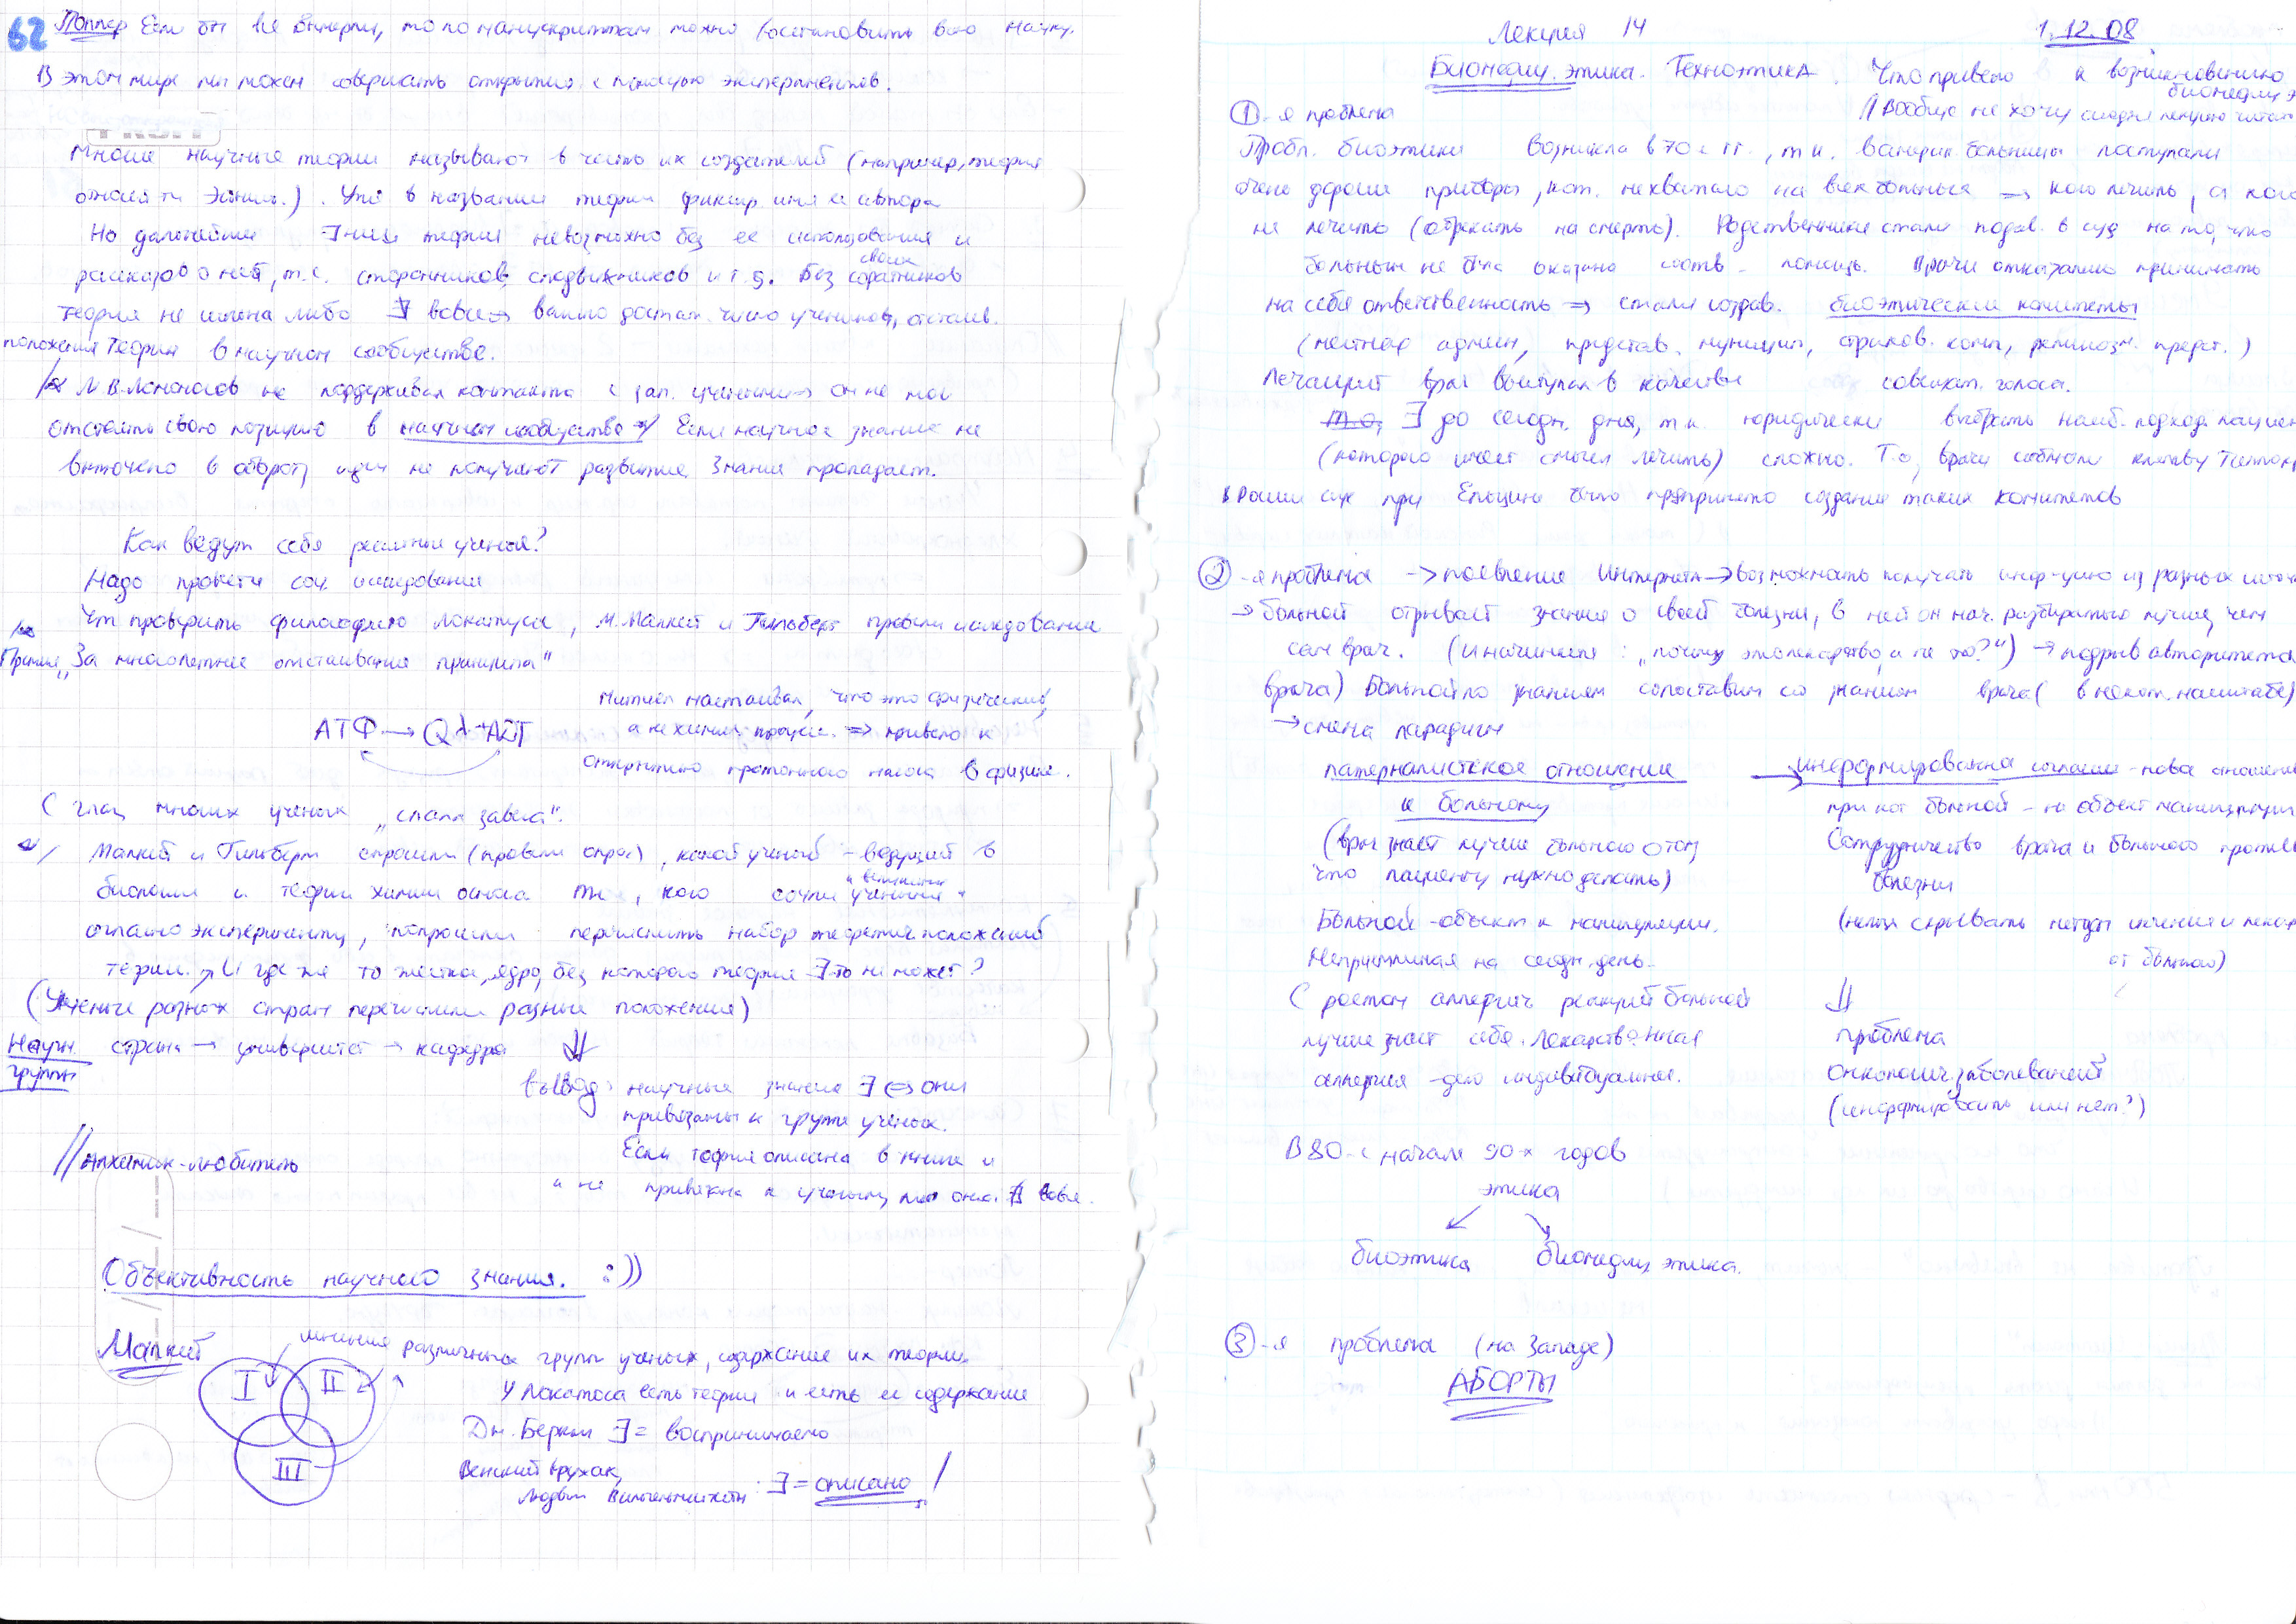 62
Поппер Если бы все вымерли, то по манускриптам можно восстановить всю науку.
В этом мире мы можем совершать открытия с помощью экспериментов.
Многие научные теории называют в честь их создателей (например, теория
относит-ти Эйншт.). Уже в названии теории фиксир. имя её автора
Но дальнейшее ∃ние теории невозможно без её использования и
рассказов о ней, т.е. сторонников, сподвижников и т.д. Без своих соратников
теория не имела либо ∃ вовсе ⇒ важно достат. число учеников, отстаив.
положения теории в научном сообществе.
М.В. Ломоносов не поддерживал контакта с зап. учеными ⇒ он не мог
отстоять свою позицию в научном сообществе. Если научное знание не
включено в оборот, идеи не получают развития. Знание пропадает.
Как ведут себя реальные ученые?
Надо провести соц. исследование
Чт проверить философию Локатоса, М. Малкей и Гильберт провели исследование
Премия „За многолетнее отстаивание принципа"
Митчел настаивал, что это физический,
АТФ → Q λ + АДТ а не химич. процесс. ⇒ привело к
открытию протонного насоса в физике.
С глаз многих ученых „спала завеса".
Малкей и Гильберт спросили (провели опрос), какой ученый – ведущий в
биологии и теории химии осмоса те, кого сочли „великими учеными"
согласно эксперименту, попросили перечислить набор теоретич. положений
теории. → И где же то жестк. ядро, без которого теория ∃-ть не может?
(Ученые разных стран перечислили разные положения)
Научн. группы страна → университет → кафедра ⇓
Вывод: научные знания ∃ ⇔ они
привязаны к группе ученых.
Если теория описана в книге и
и не привязана к ученому, то она ∄ вовсе.
//Алхимик-любитель
Объективность научного знания. :))
Малкей мнения различных групп ученых, содержание их теории.
I II III
У Локатоса есть теория и есть её содержание
Дж. Беркли ∃ = воспринимаемо
Венский кружок,
Людвиг Витгенштейн : ∃ = описано!
Лекция 14 1.12.08
Биомедиц. этика. Техноэтика. Что привело к возникновению
биомедиц. э
① -я проблема //Вообще не хочу сегодня лекцию читать
Пробл. биоэтики возникла в 70-х гг., т.к. в америк. больницы поступали
очень дорогие приборы, кот. не хватало на всех больных ⇒ кого лечить, а кого
не лечить (обрекать на смерть). Родственники стали подав. в суд на то, что
больным не была оказана соотв. помощь. Врачи отказались принимать
на себя ответственность ⇒ стали создав. биоэтические комитеты
(местная админ, представ. муницип, страхов. комп, религиозн. предст.)
Лечащий врач выступал в качестве совещат. голоса.
т.о, ∃ до сегодн. дня, т.к. юридически выбрать наиб. подход. пациен
(которого имеет смысл лечить) сложно. Т.о, врачи соблюли клятву Гиппокр
В России еще при Ельцине было предпринято создание таких комитетов
② -я проблема → появление Интернета → возможность получать инф-цию из разных источ
→ больной открывает знания о своей болезни, в ней он нач. разбираться лучше, чем
сам врач. (и начинается: „почему это лекарство, а не то?") → подрыв авторитета
врача) Больной по знаниям сопоставим со знанием врача (в некот. масштабе)
→ смена парадигм
патерналистское отношение → информированное согласие – новое отношение
к больному при кот. больной – не объект манипуляции
(врач знает лучше больного о том Сотрудничество врача и больного против
что пациенту нужно делать) болезни
Больной – объект к манипуляции. (нельзя скрывать методы лечения и лекар
Неприемлимая на сегодн. день. от больного)
С ростом аллергич. реакций больной ⇓
лучше знает себя. Лекарственная проблема
аллергия – дело индивидуальное. онкологич. заболеваний
(информировать или нет?)
В 80-х начале 90-х годов
этика
биоэтика биомедиц. этика.
③ -я проблема (на Западе)
АБОРТЫ